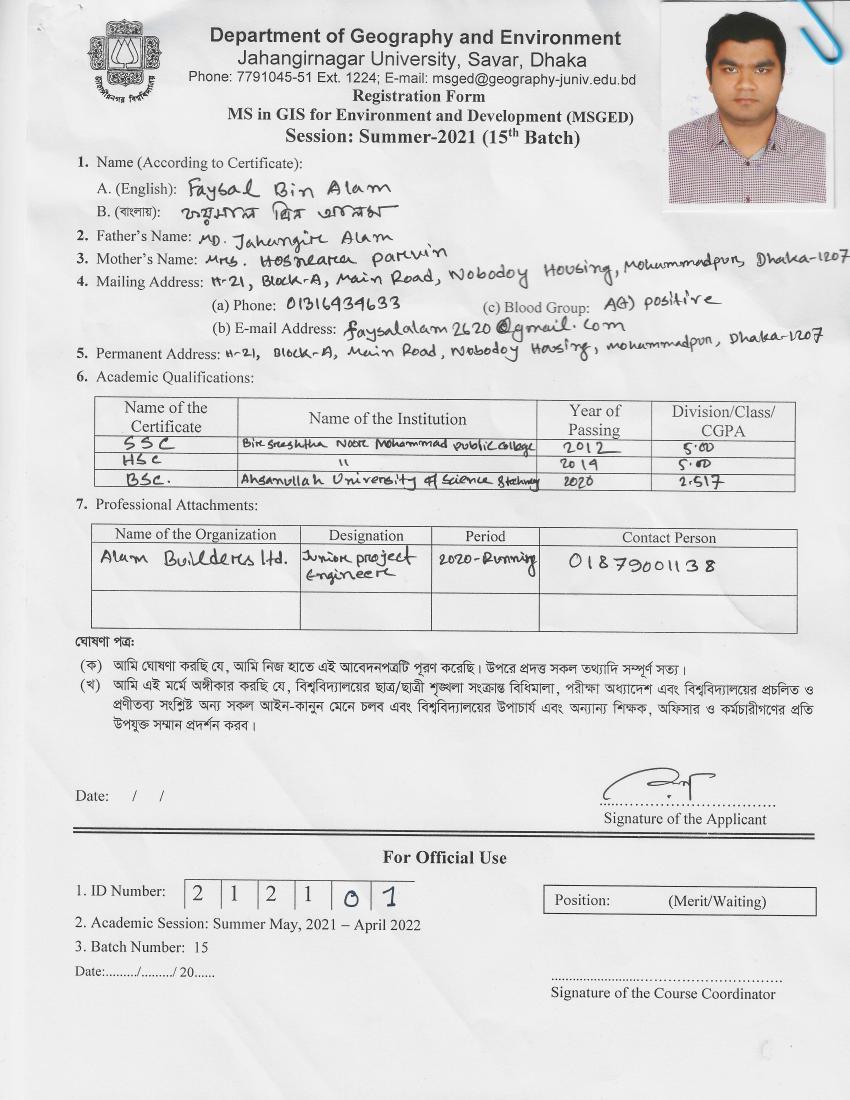 Department of Geography and Environment
Jahangirnagar University, Savar, Dhaka
Phone: 7791045-51 Ext. 1224; E-mail: msged@geography-juniv.edu.bd
Registration Form
MS in GIS for Environment and Development (MSGED)
Session: Summer-2021 (15th Batch)
জাহাঙ্গীরনগর বিশ্ববিদ্যালয়
1. Name (According to Certificate):
A. (English): Faysal Bin Alam
B. (বাংলায়): ফয়সাল বিন আলম
2. Father's Name: MD. Jahangir Alam
3. Mother's Name: Mrs. Hosneara Parvin
4. Mailing Address: H-21, Block-A, Main Road, Nobodoy Housing, Mohammadpur, Dhaka-1207
(a) Phone: 01316934633 (c) Blood Group: A(+) positive
(b) E-mail Address: faysalalam2620@gmail.com
5. Permanent Address: H-21, Block-A, Main Road, Nobodoy Housing, mohammadpur, Dhaka-1207
6. Academic Qualifications:
Name of the Certificate Name of the Institution Year of Passing Division/Class/CGPA
SSC Bir Sreshtha Noor Mohammad public college 2012 5.00
HSC " 2014 5.00
BSC. Ahsanullah University of Science & 2020 2.517
7. Professional Attachments:
Name of the Organization Designation Period Contact Person
Alam Builders Ltd. Junior project Engineer 2020-Running 01879001138
ঘোষণা পত্র:
(ক) আমি ঘোষণা করছি যে, আমি নিজ হাতে এই আবেদনপত্রটি পূরণ করেছি। উপরে প্রদত্ত সকল তথ্যাদি সম্পূর্ণ সত্য।
(খ) আমি এই মর্মে অঙ্গীকার করছি যে, বিশ্ববিদ্যালয়ের ছাত্র/ছাত্রী শৃঙ্খলা সংক্রান্ত বিধিমালা, পরীক্ষা অধ্যাদেশ এবং বিশ্ববিদ্যালয়ের প্রচলিত ও
প্রণীতব্য সংশ্লিষ্ট অন্য সকল আইন-কানুন মেনে চলব এবং বিশ্ববিদ্যালয়ের উপাচার্য এবং অন্যান্য শিক্ষক, অফিসার ও কর্মচারীগণের প্রতি
উপযুক্ত সম্মান প্রদর্শন করব।
Date: / /
Signature of the Applicant
For Official Use
1. ID Number: 2 1 2 1 0 1
Position: (Merit/Waiting)
2. Academic Session: Summer May, 2021 – April 2022
3. Batch Number: 15
Date:........./........./ 20......
Signature of the Course Coordinator